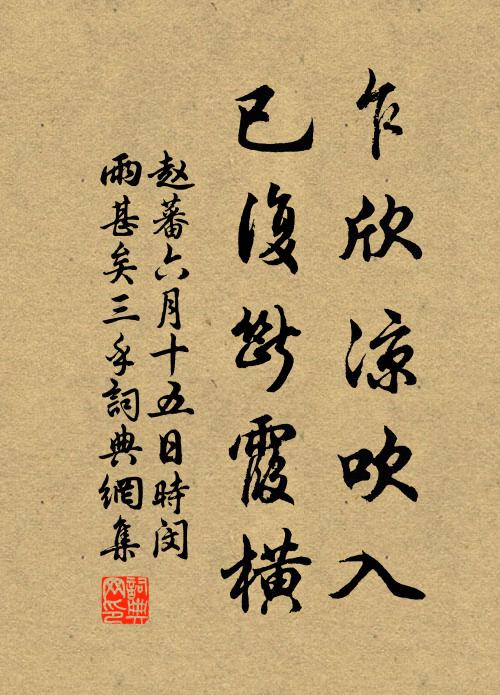 乍欣涼吹入
已復断霞橫
赵蕃六月十五日時闵
雨甚矣三手詞典網集
詞典网印